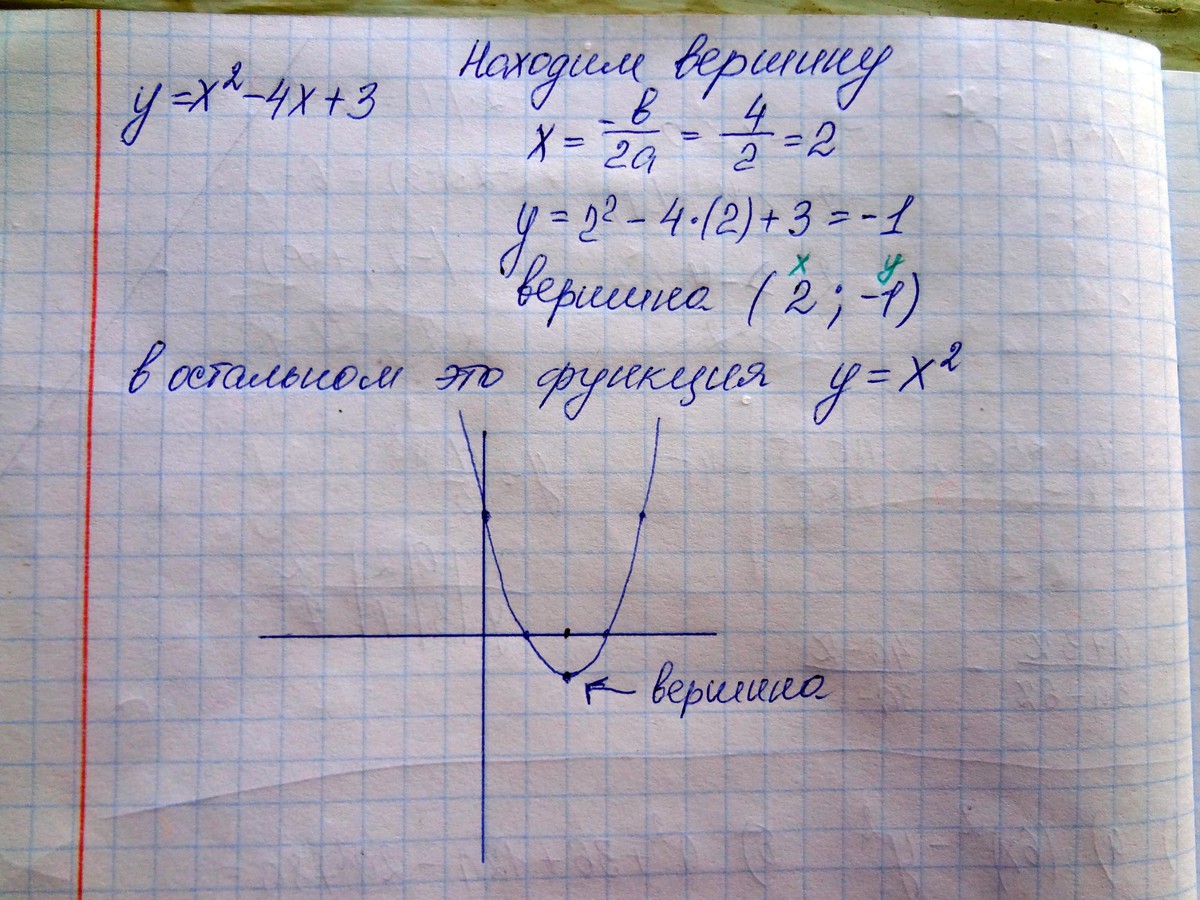 y=x²-4x+3
Находим вершину
x = -b/2a = 4/2 = 2
y = 2² - 4·(2) + 3 = -1
x y
вершина (2 ; -1)
в остальном это функция y = x²
вершина